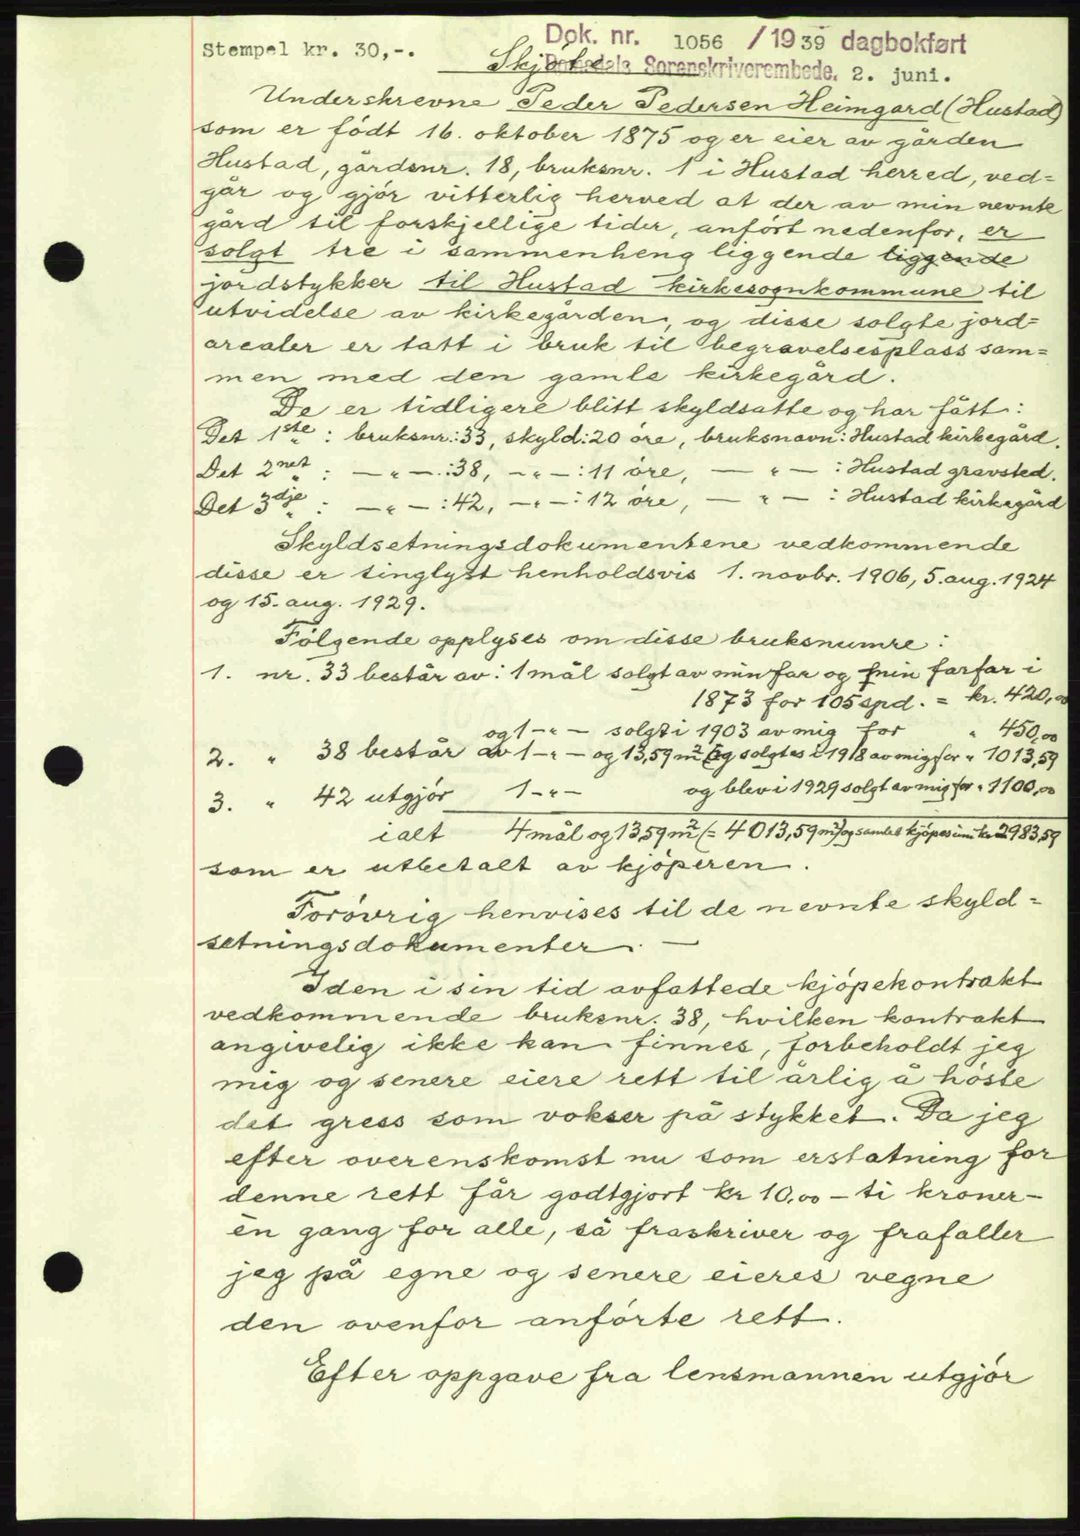 Stempel kr. 30,-.
Dok. nr. 1056 / 1939 dagbokført
Romsdals Sorenskriverembede. 2. juni.
Skjøte
Underskrevne Peder Pedersen Heimgard (Hustad)
som er født 16. oktober 1875 og er eier av gården
Hustad, gårdsnr. 18, bruksnr. 1 i Hustad herred, ved=
går og gjør vitterlig herved at der av min nevnte
gård til forskjellige tider, anført nedenfor, er
solgt tre i sammenheng liggende liggende
jordstykker til Hustad kirkesognkommune til
utvidelse av kirkegården, og disse solgte jord=
arealer er tatt i bruk til begravelsesplass sam=
men med den gamle kirkegård.
De er tidligere blitt skyldsatte og har fått:
Det 1ste : bruksnr.: 33, skyld: 20 öre, bruksnavn: Hustad kirkegård.
Det 2net : — " — : 38, — " — : 11 öre, — " — : Hustad gravsted.
Det 3dje : — " — : 42, — " — : 12 öre, — " — : Hustad kirkegård
Skyldsetningsdokumentene vedkommende
disse er tinglyst henholdsvis 1. novbr. 1906, 5. aug. 1924
og 15. aug. 1929.
Følgende opplyses om disse bruksnumre:
1. nr. 33 består av: 1 mål solgt av min far og min farfar i
1873 for 105 spd. = kr. 420,00
og 1 - " - solgt i 1903 av mig for " 450,00
2. " 38 består av 1 - " - og 13,59 m² og solgtes i 1918 av mig for " 1013,59
3. " 42 utgjør 1 - " - og blev i 1929 solgt av mig for " 1100,00
ialt 4 mål og 13,59 m² (= 4013,59 m²) og samlet kjøpesum kr. 2983,59
som er utbetalt av kjøperen.
Forøvrig henvises til de nevnte skyld=
setningsdokumenter. —
I den i sin tid avfattede kjøpekontrakt
vedkommende bruksnr. 38, hvilken kontrakt
angivelig ikke kan finnes, forbeholdt jeg
mig og senere eiere rett til årlig å høste
det gress som vokser på stykket. Da jeg
efter overenskomst nu som erstatning for
denne rett får godtgjort kr 10,00 - ti kroner -
én gang for alle, så fraskriver og frafaller
jeg på egne og senere eieres vegne
den ovenfor anførte rett.
Efter oppgave fra lensmannen utgjør